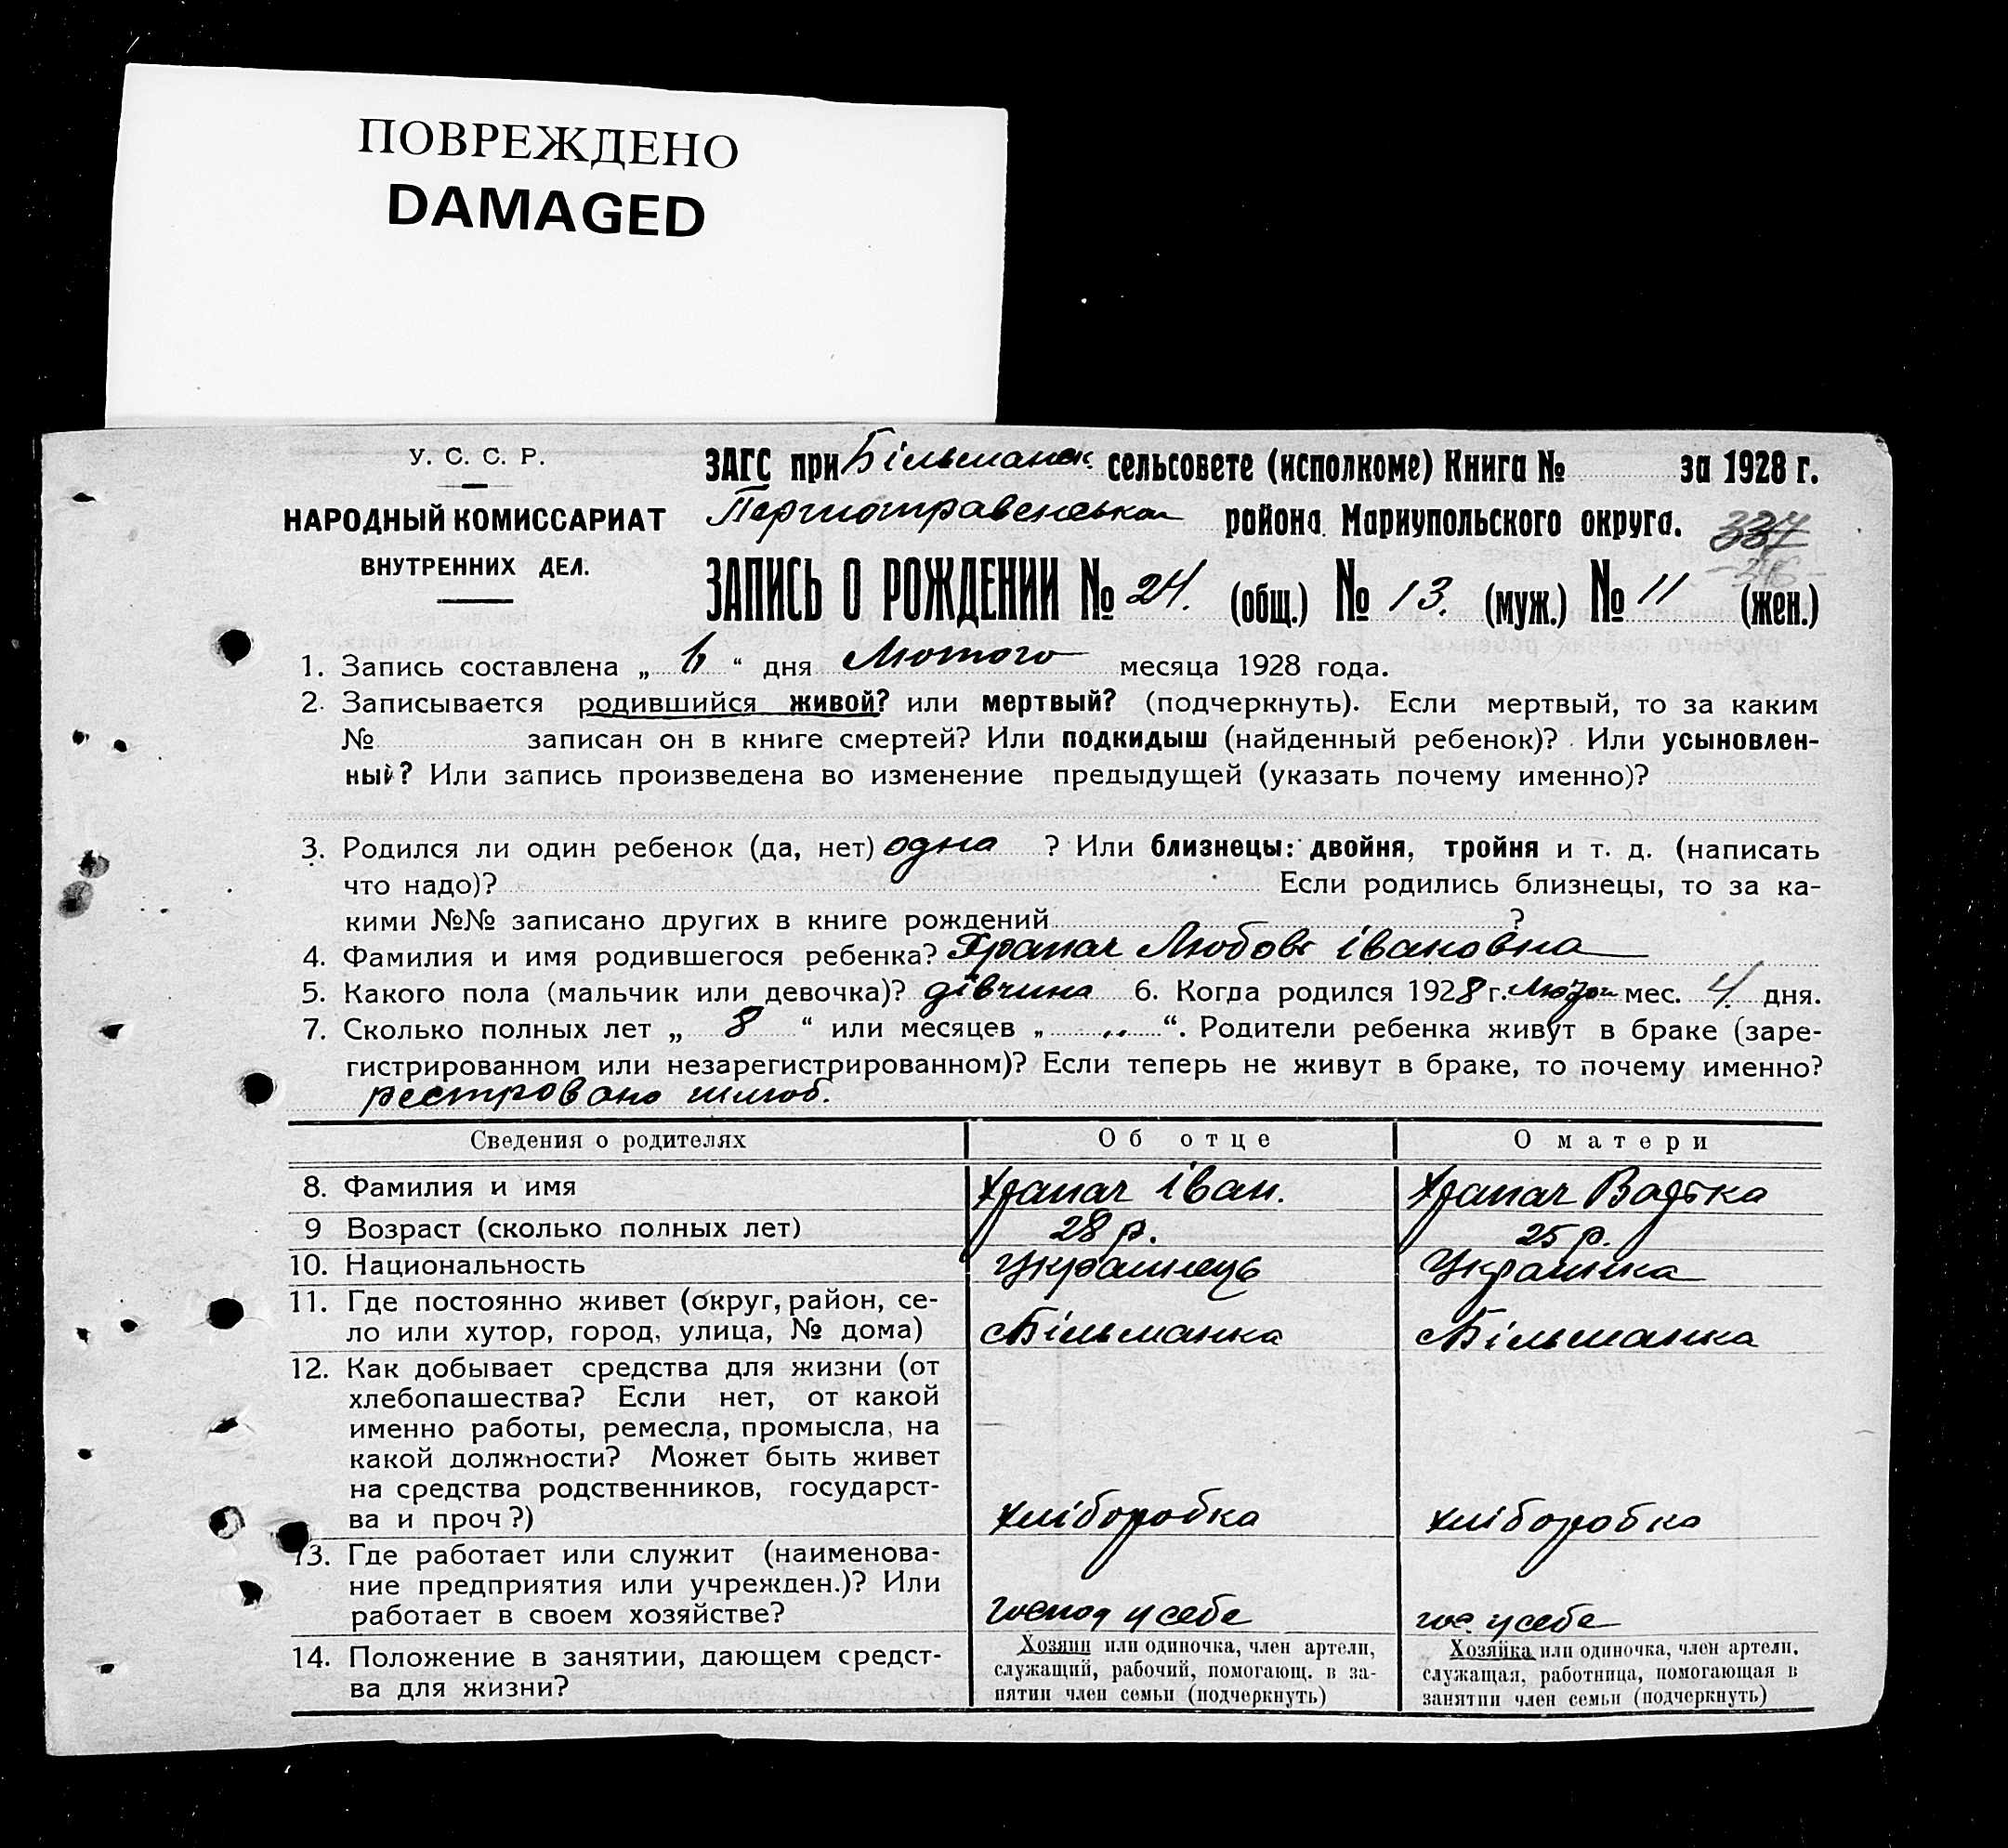 ПОВРЕЖДЕНО
DAMAGED
У. С. С. Р.
НАРОДНЫЙ КОМИССАРИАТ
ВНУТРЕННИХ ДЕЛ.
ЗАГС при Більманск. сельсовете (исполкоме) Книга № за 1928 г.
района Мариупольского округа.
337
ЗАПИСЬ О РОЖДЕНИИ № 24. (общ.) № 13. (муж.) № 11 (жен.)
1. Запись составлена „ 6 “ дня Лютого месяца 1928 года.
2. Записывается родившийся живой? или мертвый? (подчеркнуть). Если мертвый, то за каким
№ записан он в книге смертей? Или подкидыш (найденный ребенок)? Или усыновлен-
ный? Или запись произведена во изменение предыдущей (указать почему именно)?
3. Родился ли один ребенок (да, нет) одна ? Или близнецы: двойня, тройня и т. д. (написать
что надо)? Если родились близнецы, то за ка-
кими №№ записано других в книге рождений ?
4. Фамилия и имя родившегося ребенка? Храпач Любовь Івановна
5. Какого пола (мальчик или девочка)? дівчина 6. Когда родился 1928 г. мес. 4. дня.
7. Сколько полных лет „ 8 “ или месяцев „ .. “. Родители ребенка живут в браке (заре-
гистрированном или незарегистрированном)? Если теперь не живут в браке, то почему именно?
рестровано шлюб.
Сведения о родителях Об отце О матери
8. Фамилия и имя Храпач Іван. Храпач
9 Возраст (сколько полных лет) 28 р. 25 р.
10. Национальность Українець Українка
11. Где постоянно живет (округ, район, се-
ло или хутор, город, улица, № дома) Більманка Більманка
12. Как добывает средства для жизни (от
хлебопашества? Если нет, от какой
именно работы, ремесла, промысла, на
какой должности? Может быть живет
на средства родственников, государст-
ва и проч?) хліборобка хліборобка
13. Где работает или служит (наименова-
ние предприятия или учрежден.)? Или
работает в своем хозяйстве? господ у себе гос. у себе
14. Положение в занятии, дающем средст-
ва для жизни?
Хозяин или одиночка, член артели,
служащий, рабочий, помогающ. в за-
нятии член семьи (подчеркнуть)
Хозяйка или одиночка, член артели,
служащая, работница, помогающая в
занятии член семьи (подчеркнуть)